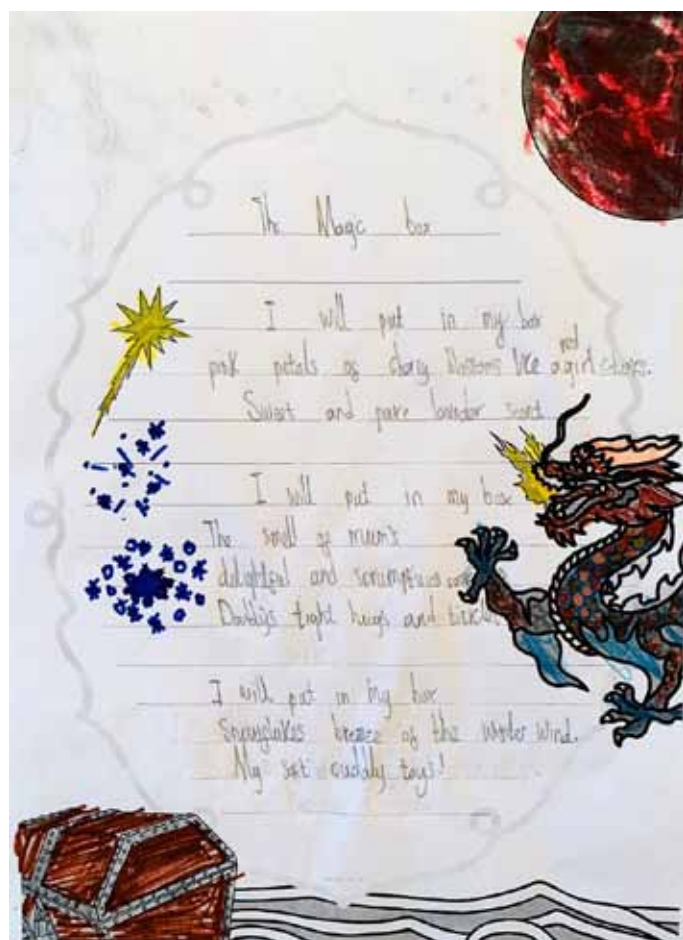 The Magic box
I will put in my box
pink petals of cherry blossoms like a girl
Sweet and pure scent
I will put in my box
The smell of mum's
delightful and scrumptious
Daddy's tight hugs and
I will put in my box
Snowflakes breeze of the winter wind.
My soft cuddly toys!